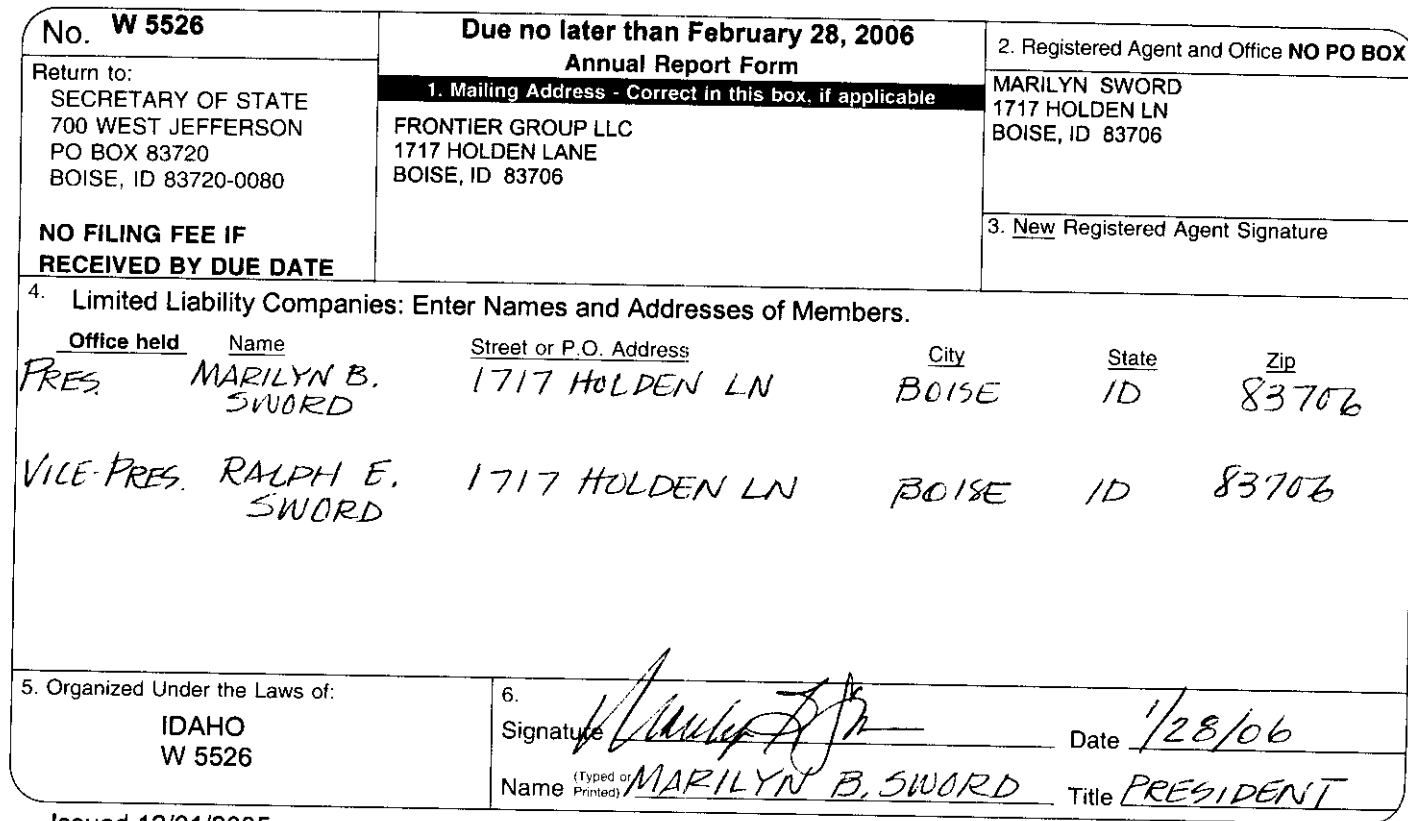 No. W 5526
Return to:
SECRETARY OF STATE
700 WEST JEFFERSON
PO BOX 83720
BOISE, ID 83720-0080
NO FILING FEE IF
RECEIVED BY DUE DATE
Due no later than February 28, 2006
Annual Report Form
1. Mailing Address - Correct in this box, if applicable
FRONTIER GROUP LLC
1717 HOLDEN LANE
BOISE, ID 83706
2. Registered Agent and Office NO PO BOX
MARILYN SWORD
1717 HOLDEN LN
BOISE, ID 83706
3. New Registered Agent Signature
4. Limited Liability Companies: Enter Names and Addresses of Members.
Office held Name Street or P.O. Address City State Zip
PRES. MARILYN B. 1717 HOLDEN LN BOISE ID 83706
SWORD
VICE-PRES. RALPH E. 1717 HOLDEN LN BOISE ID 83706
SWORD
5. Organized Under the Laws of:
IDAHO
W 5526
6.
Signature Date 1/28/06
Name (Typed or Printed) MARILYN B. SWORD Title PRESIDENT